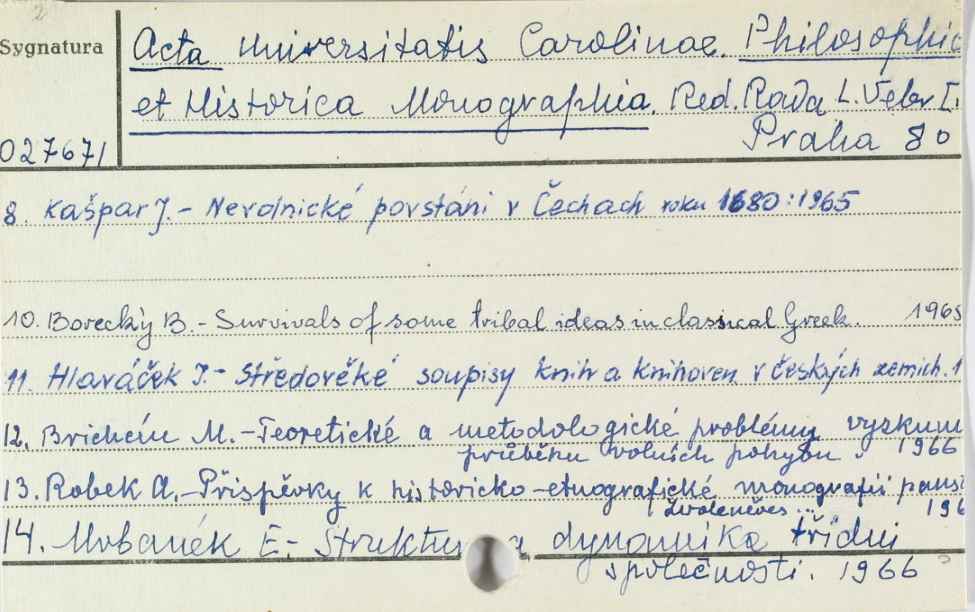 2
Sygnatura
Acta Universitatis Carolinae. Philosophic
et Historica Monographia. Red. Rada L. Vebr I.
Praha 80
027671
8. Kašpar J. - Nevolnické povstáni v Čechach roku 1680 : 1965
10. Borecký B. - Survivals of some tribal ideas in classical Greek. 1965
11. Hlaváček I. - Středověké soupisy knih a knihoven v českých zemich. 1
12. Brichcín M. - Teoretické a metodologické problémy vyzkum
průběhu volních pohybu. 1966
13. Robek A. - Přispěvky k historicko-etnografické monografii pans
Zvoleněves... 196
14. Urbanék E. - Struktu a dynamika třídni
společnosti. 1966